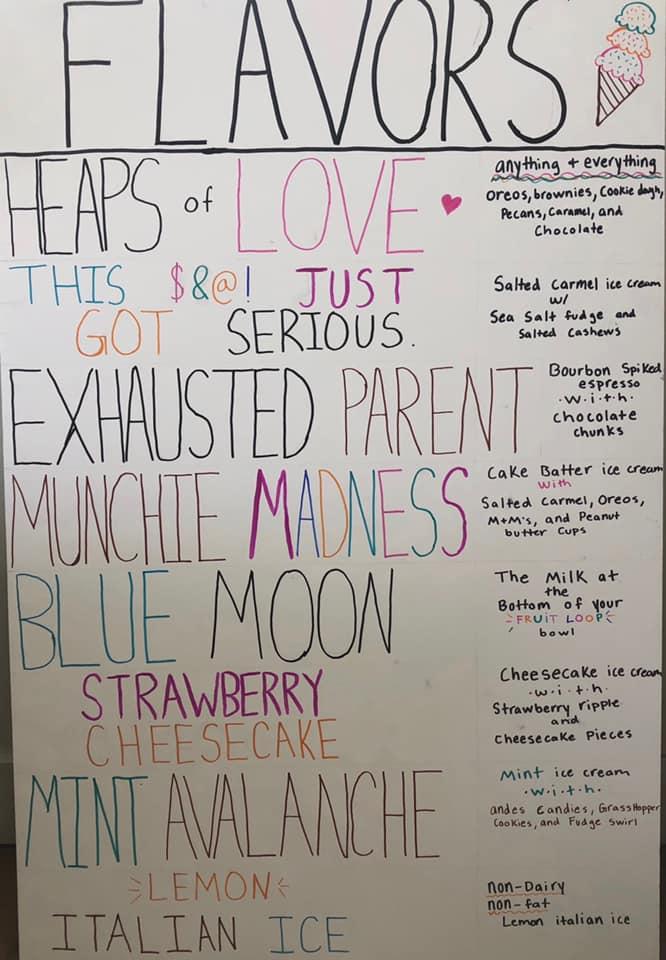 FLAVORS
HEAPS of LOVE
anything + everything
Oreos, brownies, Cookie dough,
Pecans, Caramel, and
Chocolate
THIS $&@! JUST
GOT SERIOUS.
Salted Carmel ice cream
w/
Sea Salt fudge and
Salted Cashews
EXHAUSTED PARENT
Bourbon Spiked
espresso
·w·i·t·h·
chocolate
chunks
MUNCHIE MADNESS
Cake Batter ice cream
with
Salted Carmel, Oreos,
M+M's, and Peanut
butter Cups
BLUE MOON
The Milk at
the
Bottom of your
FRUIT LOOP
bowl
STRAWBERRY
CHEESECAKE
Cheesecake ice cream
·w·i·t·h·
Strawberry ripple
and
Cheesecake Pieces
MINT AVALANCHE
Mint ice cream
·w·i·t·h·
andes Candies, GrassHopper
Cookies, and Fudge Swirl
LEMON
ITALIAN ICE
non-Dairy
non-fat
Lemon italian ice